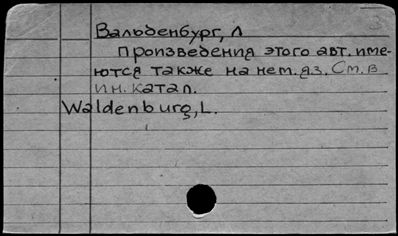 Вальденбург, Л
Произведения этого авт. име-
ются также на нем. яз. См. в
ин. катал.
Waldenburg, L.